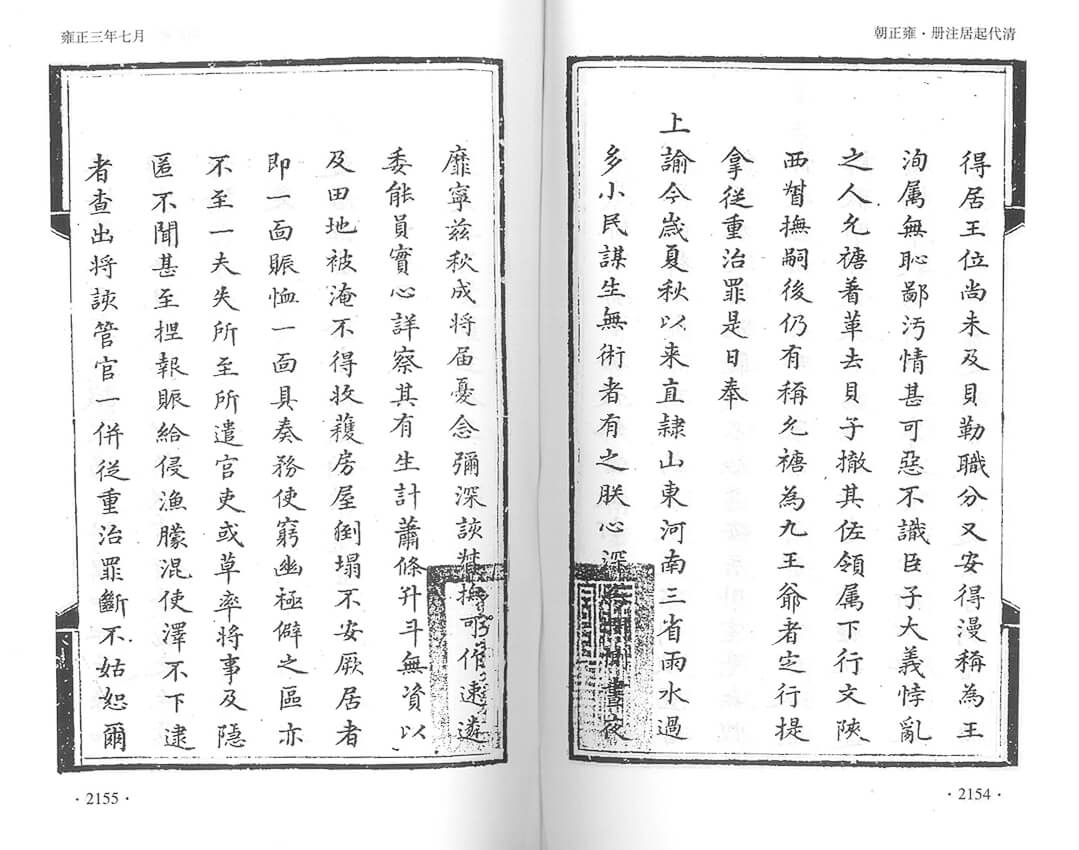 清代起居注册·雍正朝
得居王位尚未及貝勒職分又安得漫稱為王
洵属無恥鄙污情甚可惡不識臣子大義悖亂
之人允禟着革去貝子撤其佐領属下行文陝
西督撫嗣後仍有稱允禟為九王爺者定行提
拿從重治罪是日奉
上諭今歲夏秋以来直隸山東河南三省雨水過
多小民謀生無術者有之朕心深為憫惻晝夜
·2154·
雍正三年七月
靡寧兹秋成将届憂念彌深該督撫可作速遴
委能員實心詳察其有生計蕭條升斗無資以
及田地被淹不得收穫房屋倒塌不安厥居者
即一面賑恤一面具奏務使窮幽極僻之區亦
不至一夫失所至所遣官吏或草率将事及隱
匿不聞甚至捏報賑給侵漁朦混使澤不下逮
者查出将該管官一併從重治罪斷不姑恕爾
·2155·